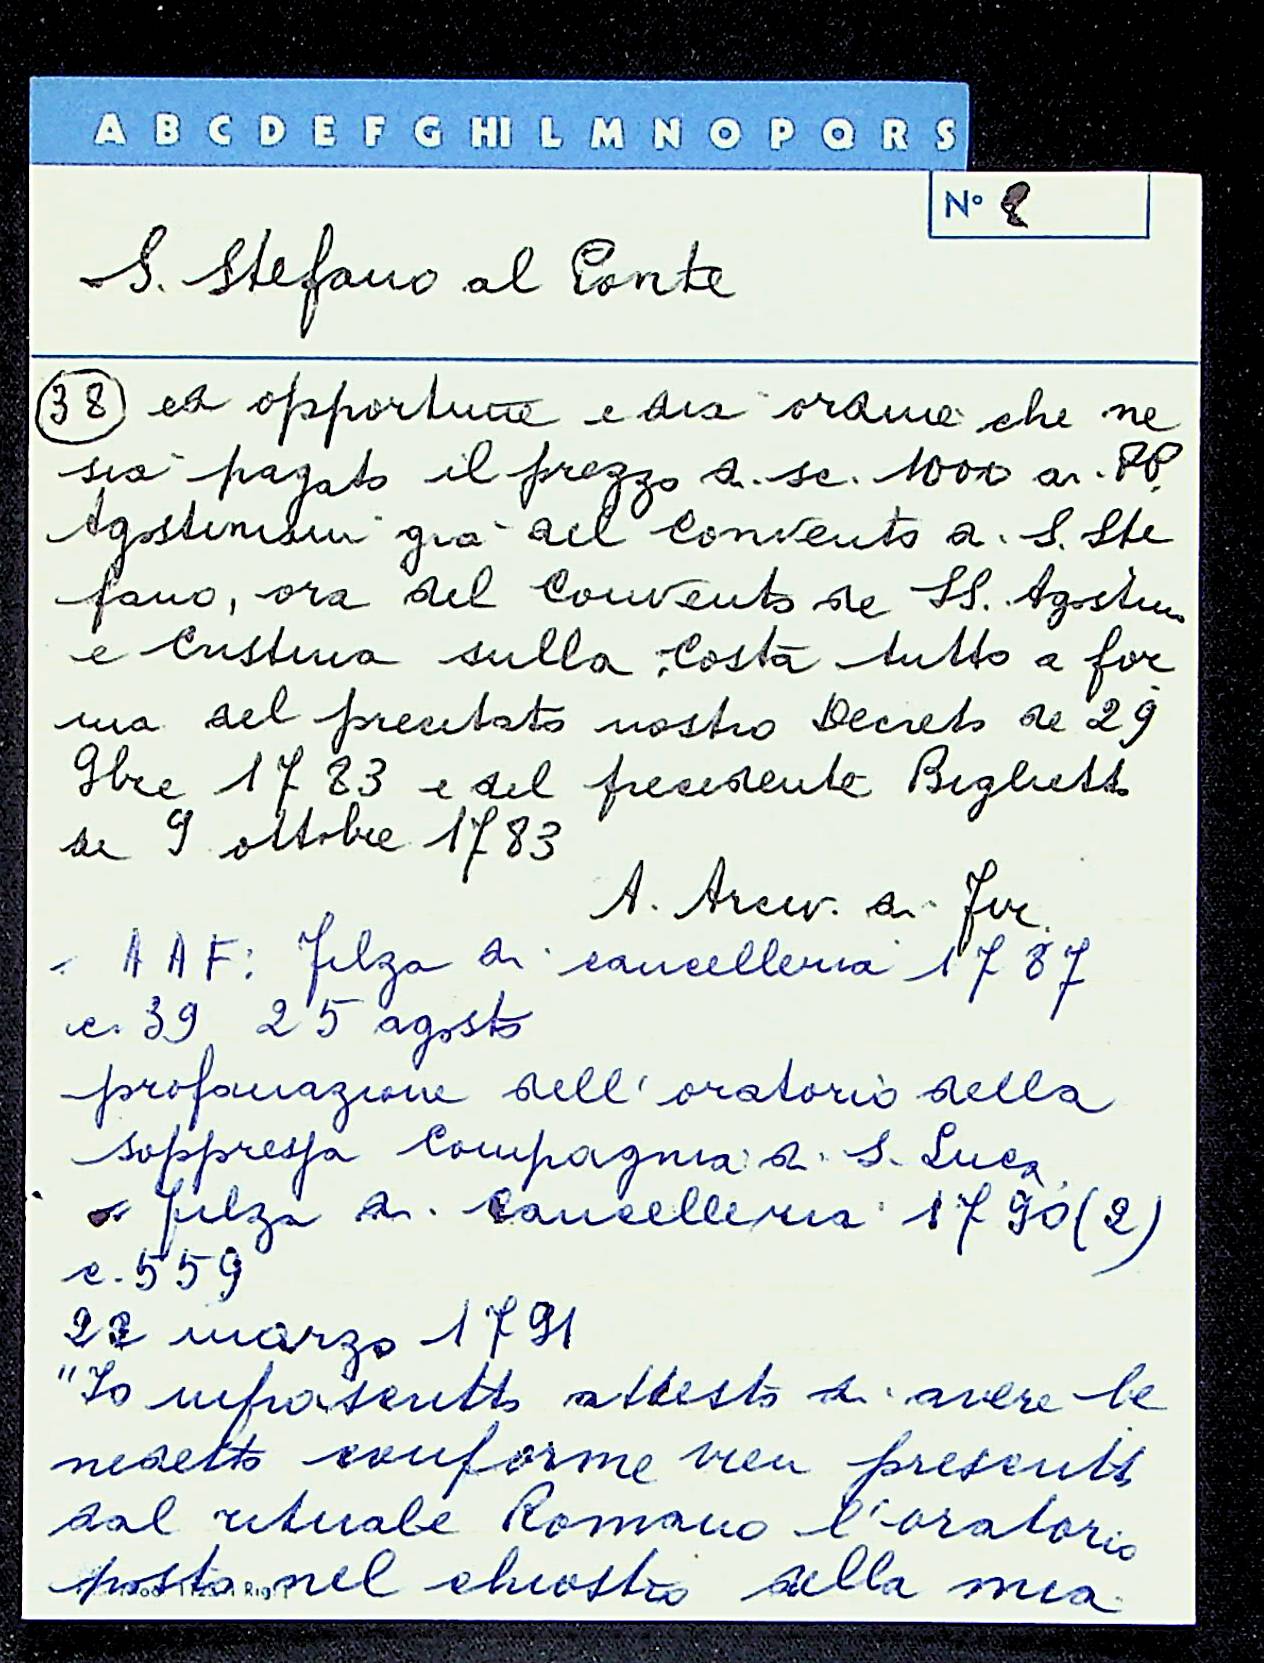 A B C D E F G HI L M N O P Q R S
N° 8
S. Stefano al Ponte
38 ed opportune e dia ordine che ne
sia pagato il prezzo di sc. 1000 ai PP.
Agostiniani già del Convento di S. Ste
fano, ora del Convento de SS. Agostino
e Cristina sulla Costa tutto a for
ma del precitato nostro Decreto de 29
9bre 1783 e del precedente Biglietto
de 9 ottobre 1783
A. Arciv. di Fir.
- AAF: Filza di cancelleria 1787
c. 39 25 agosto
profanazione dell'oratorio della
soppressa Compagnia di S. Luca
- Filza di Cancelleria 1790(2)
c. 559
22 marzo 1791
"Io infrascritto attesto di avere be
nedetto conforme vien prescritto
dal rituale Romano l'oratorio
posto nel chiostro della mia